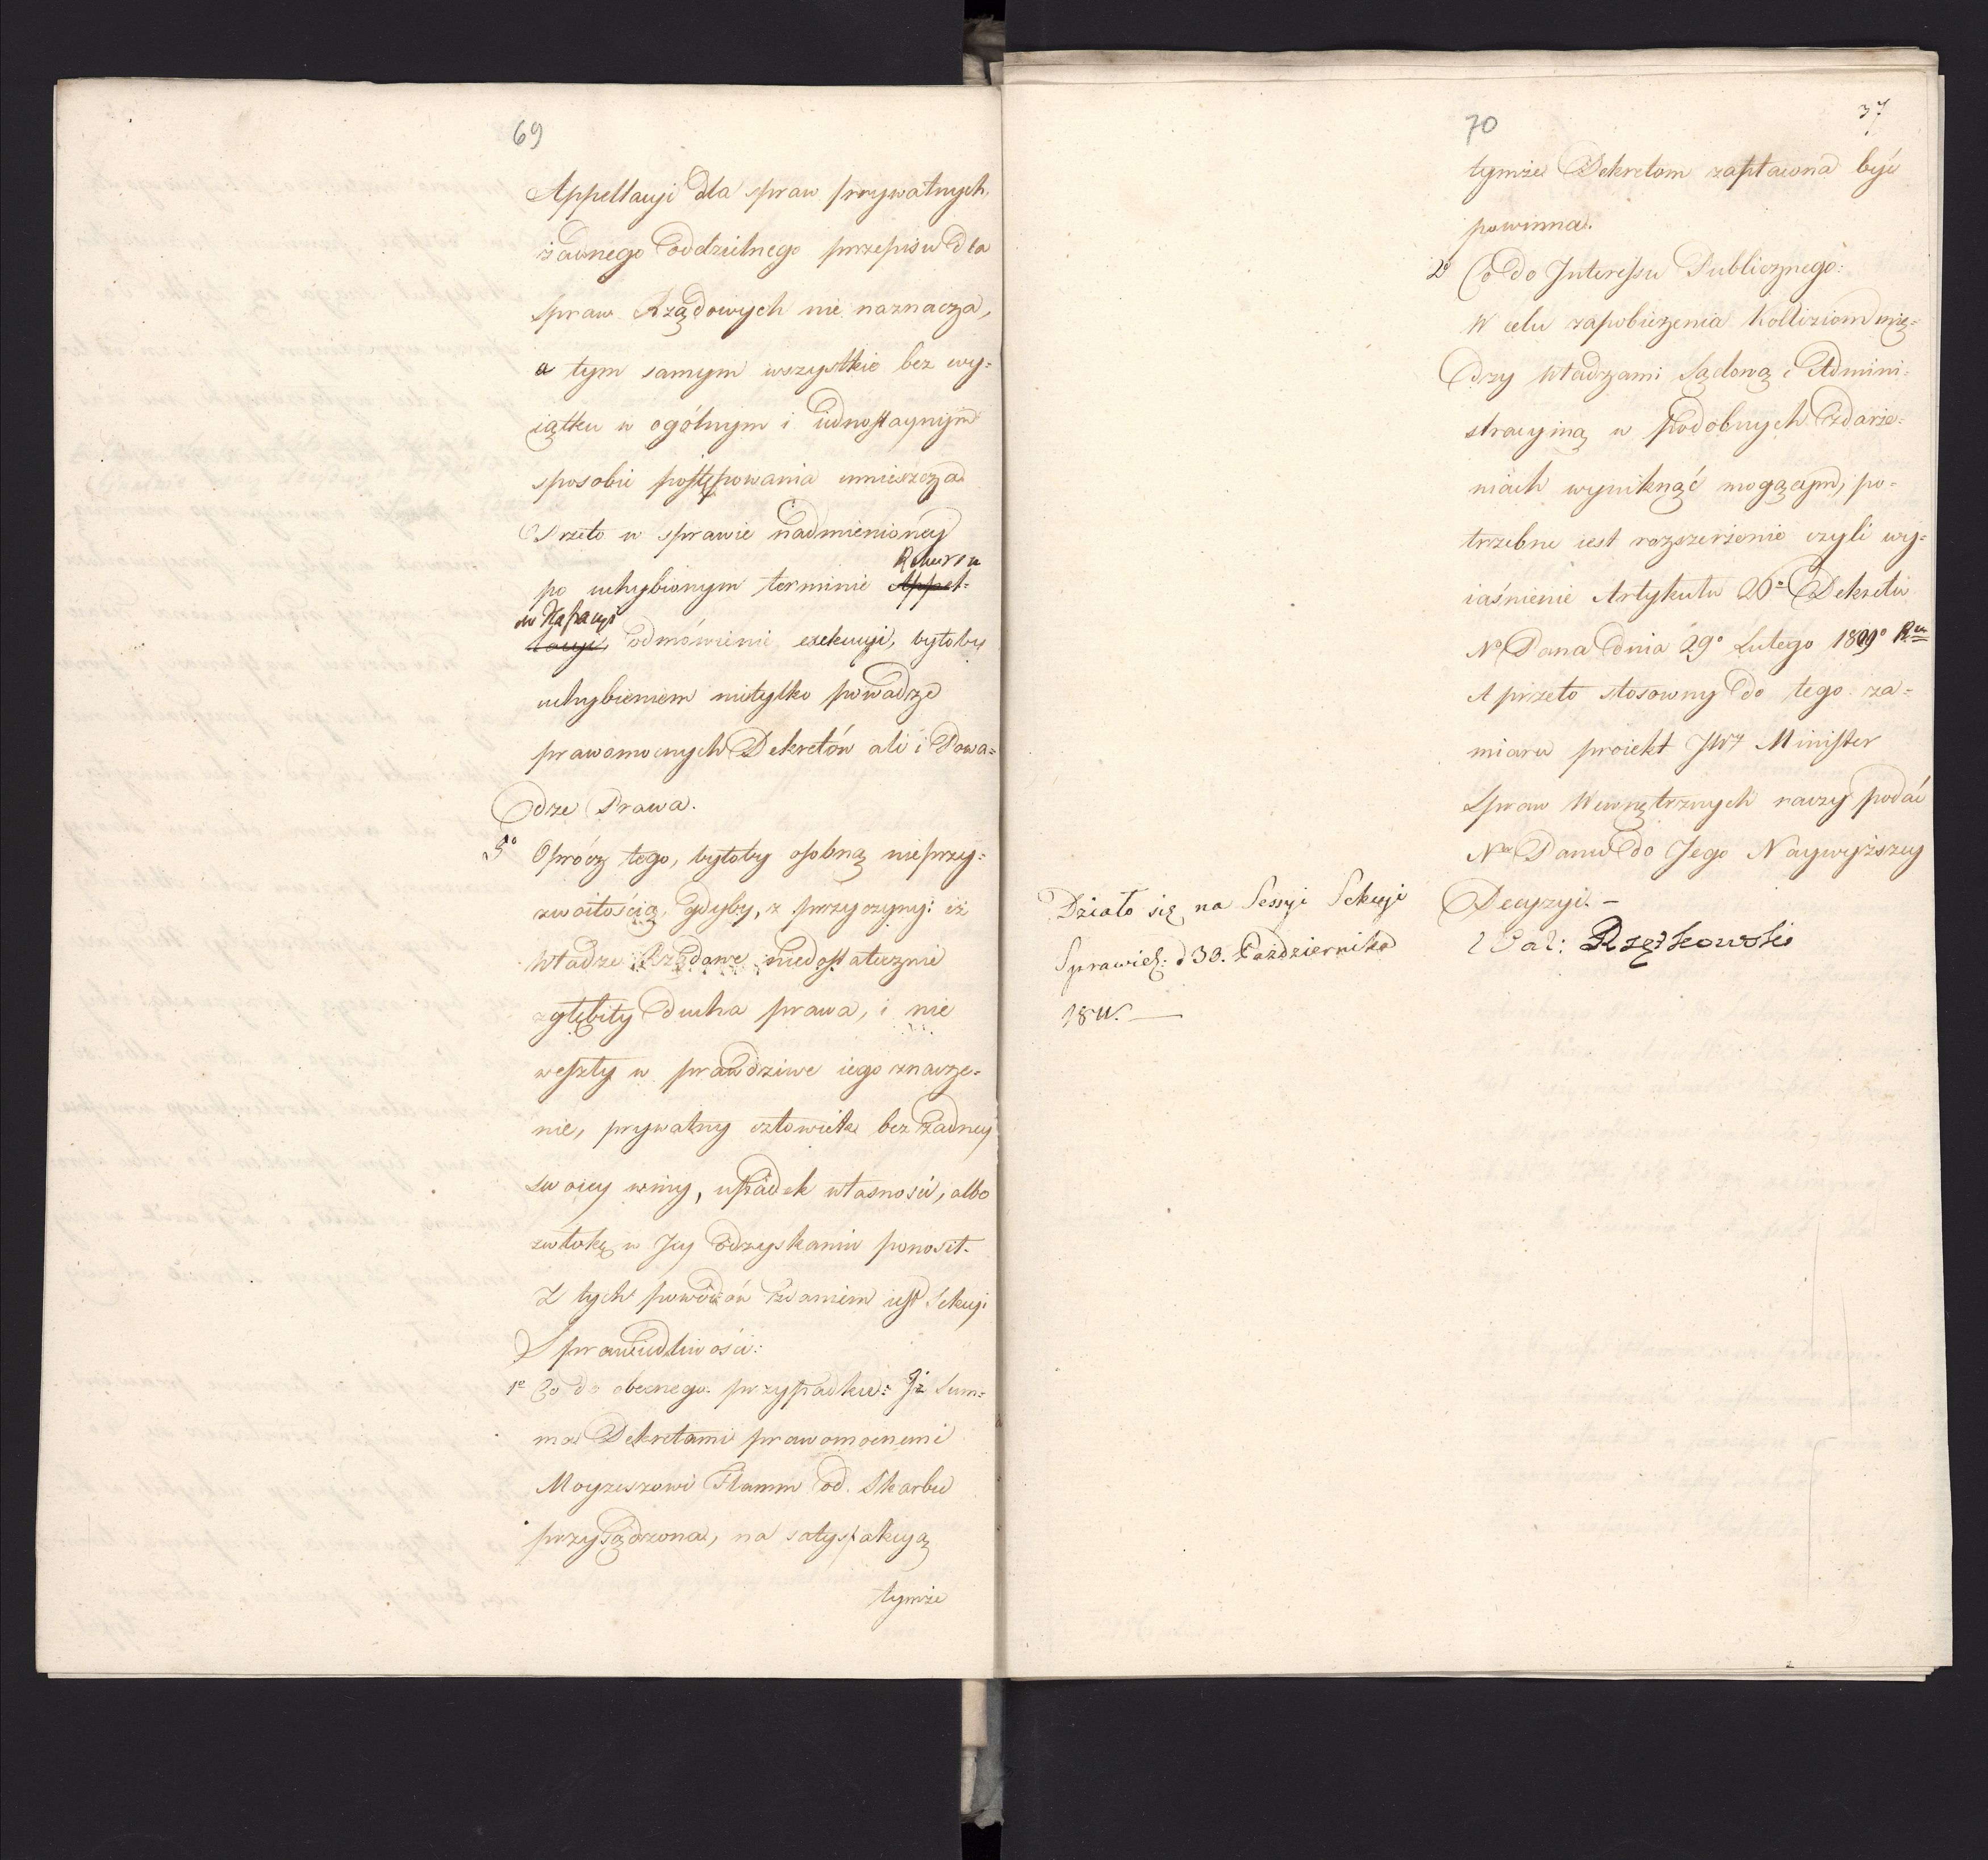 69
Appellacyi dla spraw prrywatnych,
żadnego oddzielnego przepisu dla
spraw Rządowych nie naznacza,
a tym samym wszystkie bez wy=
iątku w ogólnym i iednostaynym
sposobie postępowania umieszcza
Przeto w sprawie nadmienioney
Rekursu
po uchybionym terminie Appel=
do Kassacyi
lacyi, odmówienie exekucyi, byłoby
uchybieniem nietylko powadze
prawomocnych Dekretów ale i Powa=
dze Prawa.
3° Oprócz tego, byłoby osobną nieprzy=
zwoitością, gdyby, z przyczyny: iż
Władze Rządowe niedostatecznie
zgłębiły ducha prawa, i nie
weszły w prawdziwe iego znacze=
nie, prywatny człowiek bez żadney
swoiey winy, upadek własności, albo
zwłokę w Jey odzyskaniu ponosił.
Z tych powodów zdaniem iest Sekcyi
Sprawiedliwości:
1° Co do obecnego przypadku: Jż Sum=
ma Dekretami prawomocnemi
Moyżeszowi Flamm od Skarbu
przysądzona, na satysfakcyą
tymże
37
70
tymże Dekretom zapłacona być
powinna.
2° Co do Interessu Publicznego:
W celu zapobieżenia kolliziom mię=
dzy Władzami Sądową i Admini=
stracyiną w podobnych zdarze=
niach wyniknąć mogącym, po=
trzebne iest rozszerzenie czyli wy=
iaśnienie Artykułu 26° Dekretu
No Pana dnia 29° Lutego 1809° Ru
A przeto stosowny do tego za=
miaru proiekt JW Minister
Spraw Wewnętrznych raczy podać
Nu Panu do Jego Naywyższey
Decyzyi. –
Wal: Rzętkowski
Działo się na Sessyi Sekcyi
Sprawied: d 30. Października
1811. —